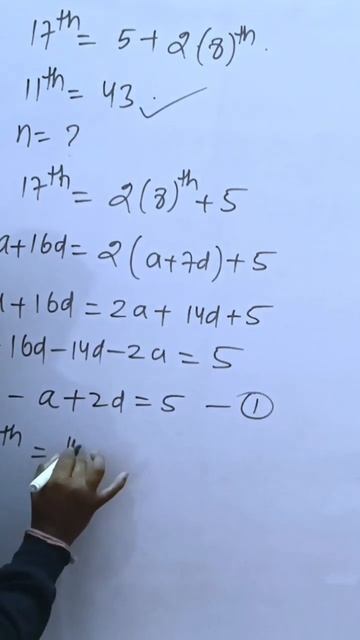 17th = 5 + 2(8)th.
11th = 43 ✓
n = ?
17th = 2(8)th + 5
a + 16d = 2(a + 7d) + 5
a + 16d = 2a + 14d + 5
16d - 14d - 2a = 5
- a + 2d = 5 - ①
th =